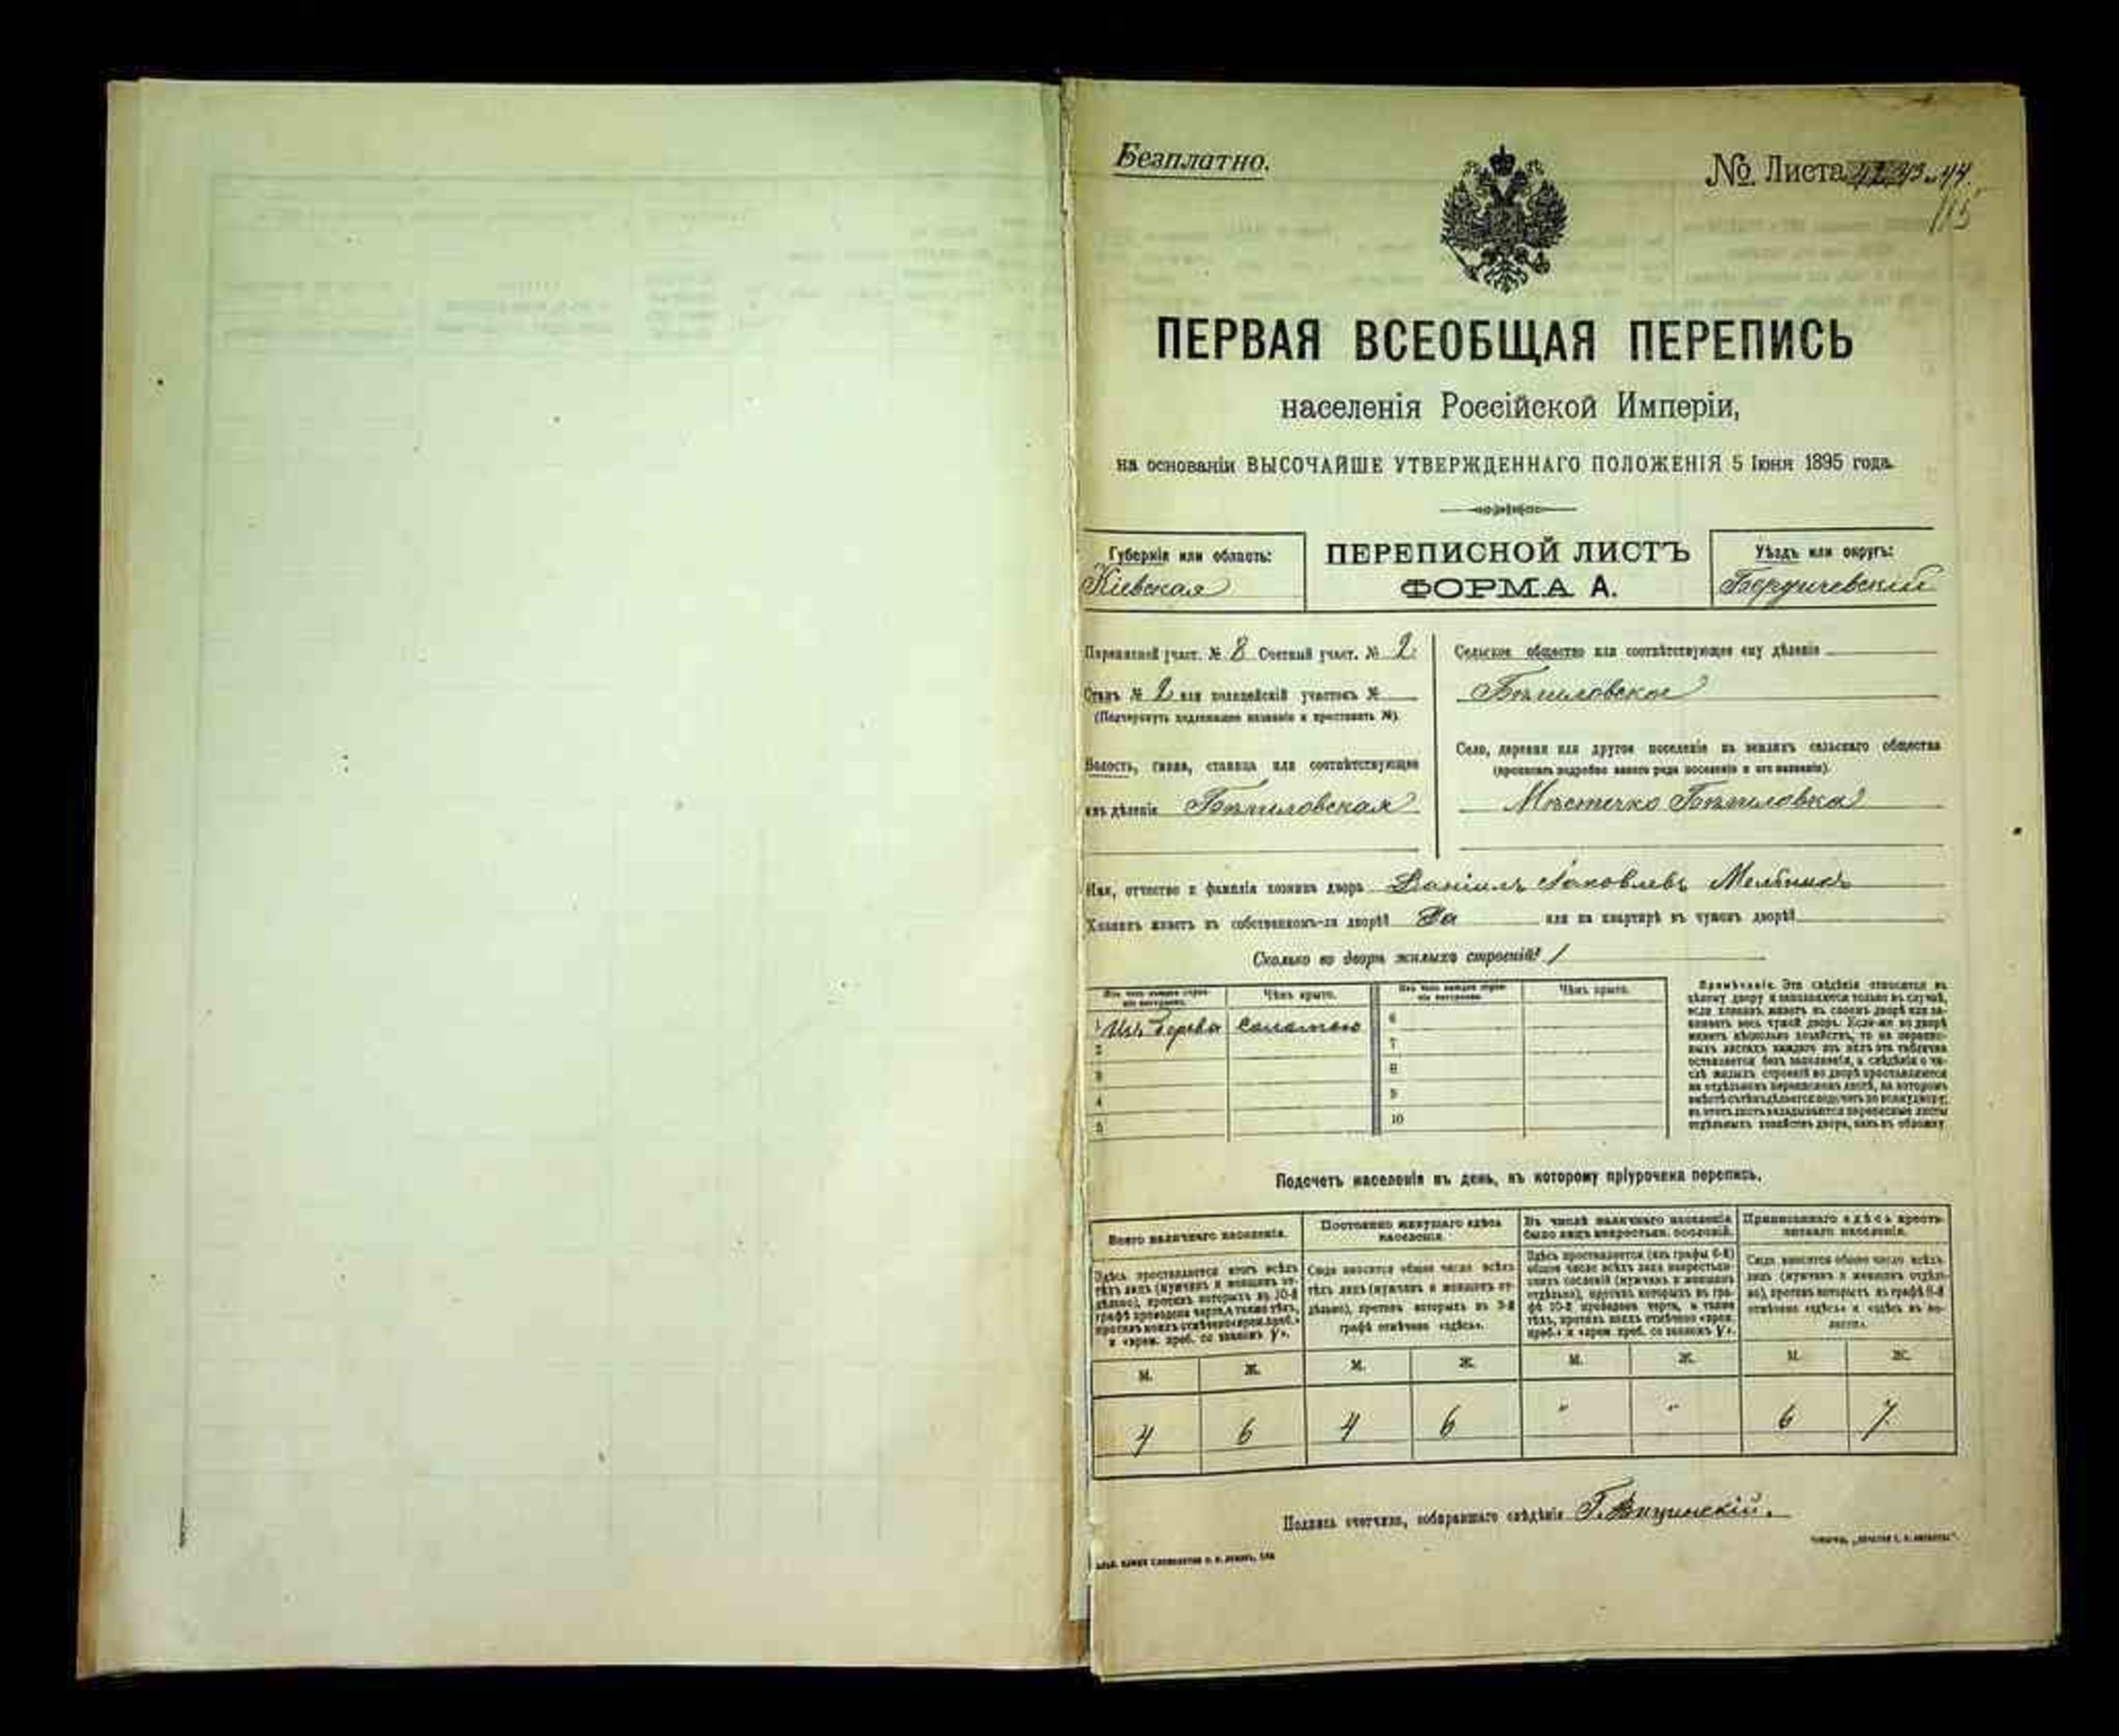 Безплатно.
№ Листа 44.
115
ПЕРВАЯ ВСЕОБЩАЯ ПЕРЕПИСЬ
населенія Россійской Имперіи,
на основаніи ВЫСОЧАЙШЕ УТВЕРЖДЕННАГО ПОЛОЖЕНІЯ 5 Іюня 1895 года.
Губернія или область:
Кіевская
ПЕРЕПИСНОЙ ЛИСТЪ
ФОРМА А.
Уѣздъ или округъ:
Бердичевскій
Переписной участ. № 8 Счетный участ. № 2
Станъ № 2 или полицейскій участокъ №
(Подчеркнуть подлежащее названіе и проставить №).
Волость, гмина, станица или соотвѣтствующее
имъ дѣленіе Бѣлиловская
Сельское общество или соотвѣтствующее ему дѣленіе
Бѣлиловское
Село, деревня или другое поселеніе на земляхъ сельскаго общества
(прописать подробно какого рода поселеніе и его названіе).
Мѣстечко Бѣлиловка
Имя, отчество и фамилія хозяина двора Даніилъ Яковлевъ Мельникъ
Хозяинъ живетъ въ собственномъ-ли дворѣ? Да или на квартирѣ въ чужомъ дворѣ?
Сколько во дворѣ жилыхъ строеній? 1
Изъ чего каждое строеніе построено.
Чѣмъ крыто.
Изъ чего каждое строеніе построено.
Чѣмъ крыто.
1 Изъ дерева соломою 6
2 7
3 8
4 9
5 10
Примѣчаніе. Эти свѣдѣнія относятся къ
цѣлому двору и заполняются только въ случаѣ,
если хозяинъ живетъ въ своемъ дворѣ или за-
нимаетъ весь чужой дворъ. Если-же во дворѣ
живетъ нѣсколько хозяйствъ, то на перепис-
ныхъ листахъ каждаго изъ нихъ эта табличка
оставляется безъ заполненія, а свѣдѣнія о чи-
слѣ жилыхъ строеній во дворѣ проставляются
на отдѣльномъ переписномъ листѣ, на которомъ
вмѣстѣ съ тѣмъ дѣлается подсчетъ по всему двору;
въ этотъ листъ вкладываются переписные листы
отдѣльныхъ хозяйствъ двора, какъ въ обложку
Подсчетъ населенія въ день, къ которому пріурочена перепись.
Всего наличнаго населенія.
Постоянно живущаго здѣсь населенія
Въ числѣ наличнаго населенія было лицъ некрестьян. сословій.
Приписаннаго здѣсь кресть-янскаго населенія.
Здѣсь проставляется итогъ всѣхъ
тѣхъ лицъ (мужчинъ и женщинъ от-
дѣльно), противъ которыхъ въ 10-й
графѣ проведена черта, а также тѣхъ,
противъ коихъ отмѣчено «врем. преб.»
и «врем. преб. со знакомъ V».
Сюда вносится общее число всѣхъ
тѣхъ лицъ (мужчинъ и женщинъ от-
дѣльно), противъ которыхъ въ 9-й
графѣ отмѣчено «здѣсь».
Здѣсь проставляется (изъ графы 6-й)
общее число всѣхъ лицъ некрестьян-
скихъ сословій (мужчинъ и женщинъ
отдѣльно), противъ которыхъ въ гра-
фѣ 10-й проведена черта, а также
тѣхъ, противъ коихъ отмѣчено «врем.
преб.» и «врем. преб. со знакомъ V».
Сюда вносится общее число всѣхъ
лицъ (мужчинъ и женщинъ отдѣль-
но), противъ которыхъ въ графѣ 8-й
отмѣчено «здѣсь» и «здѣсь въ во-
лости».
М. Ж. М. Ж. М. Ж. М. Ж.
4 6 4 6 " " 6 7
Подпись счетчика, собиравшаго свѣдѣнія